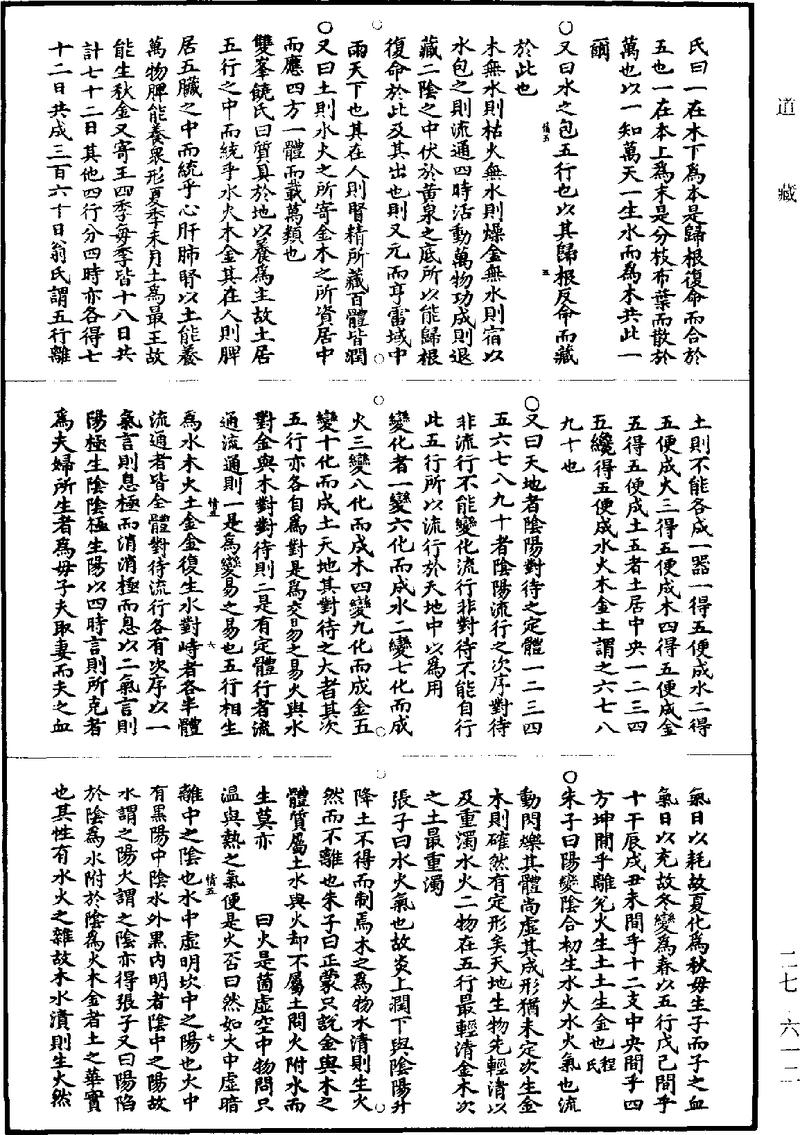 道藏
氏曰一在木下爲本是歸根復命而合於
五也一在本上爲末是分枝布葉而散於
萬也以一知萬天一生水而爲木共此一
爾
○又曰水之包五行也以其歸根反命而藏
於此也
木無水則枯火無水則燥金無水則宿以
水包之則流通四時活動萬物功成則退
藏二陰之中伏於黃泉之底所以能歸根
復命於此及其出也則又元而亨雷域中
雨天下也其在人則腎精所藏百體皆潤
○又曰土則水火之所寄金木之所資居中
而應四方一體而載萬類也
雙峯饒氏曰質具於地以養爲主故土居
五行之中而統乎水火木金其在人則脾
居五臟之中而統乎心肝肺腎以土能養
萬物脾能養衆形夏季未月土爲最王故
能生秋金又寄王四季每季皆十八日共
計七十二日其他四行分四時亦各得七
十二日共成三百六十日翁氏謂五行離
土則不能各成一器一得五便成水二得
五便成火三得五便成木四得五便成金
五得五便成土五者土居中央一二三四
五纔得五便成水火木金土謂之六七八
九十也
○又曰天地者陰陽對待之定體一二三四
五六七八九十者陰陽流行之次序對待
非流行不能變化流行非對待不能自行
此五行所以流行於天地中以為用
變化者一變六化而成水二變七化而成
火三變八化而成木四變九化而成金五
變十化而成土天地其對待之大者其次
五行亦各自爲對是爲交昜之易火與水
對金與木對對待則二是有定體行者流
通流通則一是爲變易之易也五行相生
爲水木火土金金復生水對峙者各半體
流通者皆全體對待流行各有次序以一
氣言則息極而消消極而息以二氣言則
陽極生陰陰極生陽以四時言則所克者
爲夫婦所生者爲母子夫取妻而夫之血
氣日以耗故夏化爲秋母生子而子之血
氣日以充故冬變爲春以五行戊己間乎
十干辰戌丑未間乎十二支中央間乎四
方坤間乎離兌火生土土生金也程氏
○朱子曰陽變陰合初生水火水火氣也流
動閃爍其體尚虛其成形猶未定次生金
木則確然有定形矣天地生物先輕清以
及重濁水火二物在五行最輕清金木次
之土最重濁
張子曰水火氣也故炎上潤下與陰陽升
降土不得而制焉木之爲物水漬則生火
然而不離也朱子曰正蒙只說金與木之
體質屬土水與火却不屬土問火附水而
生莫亦　曰火是箇虛空中物問只
温與熱之氣便是火否曰然如火中虛暗
離中之陰也水中虛明坎中之陽也火中
有黑陽中陰水外黑內明者陰中之陽故
水謂之陽火謂之陰亦得張子又曰陽陷
於陰爲水附於陰爲火木金者土之華實
也其性有水火之雜故木水漬則生火然
情五
五
情五
六
情五
七
二七　六一二